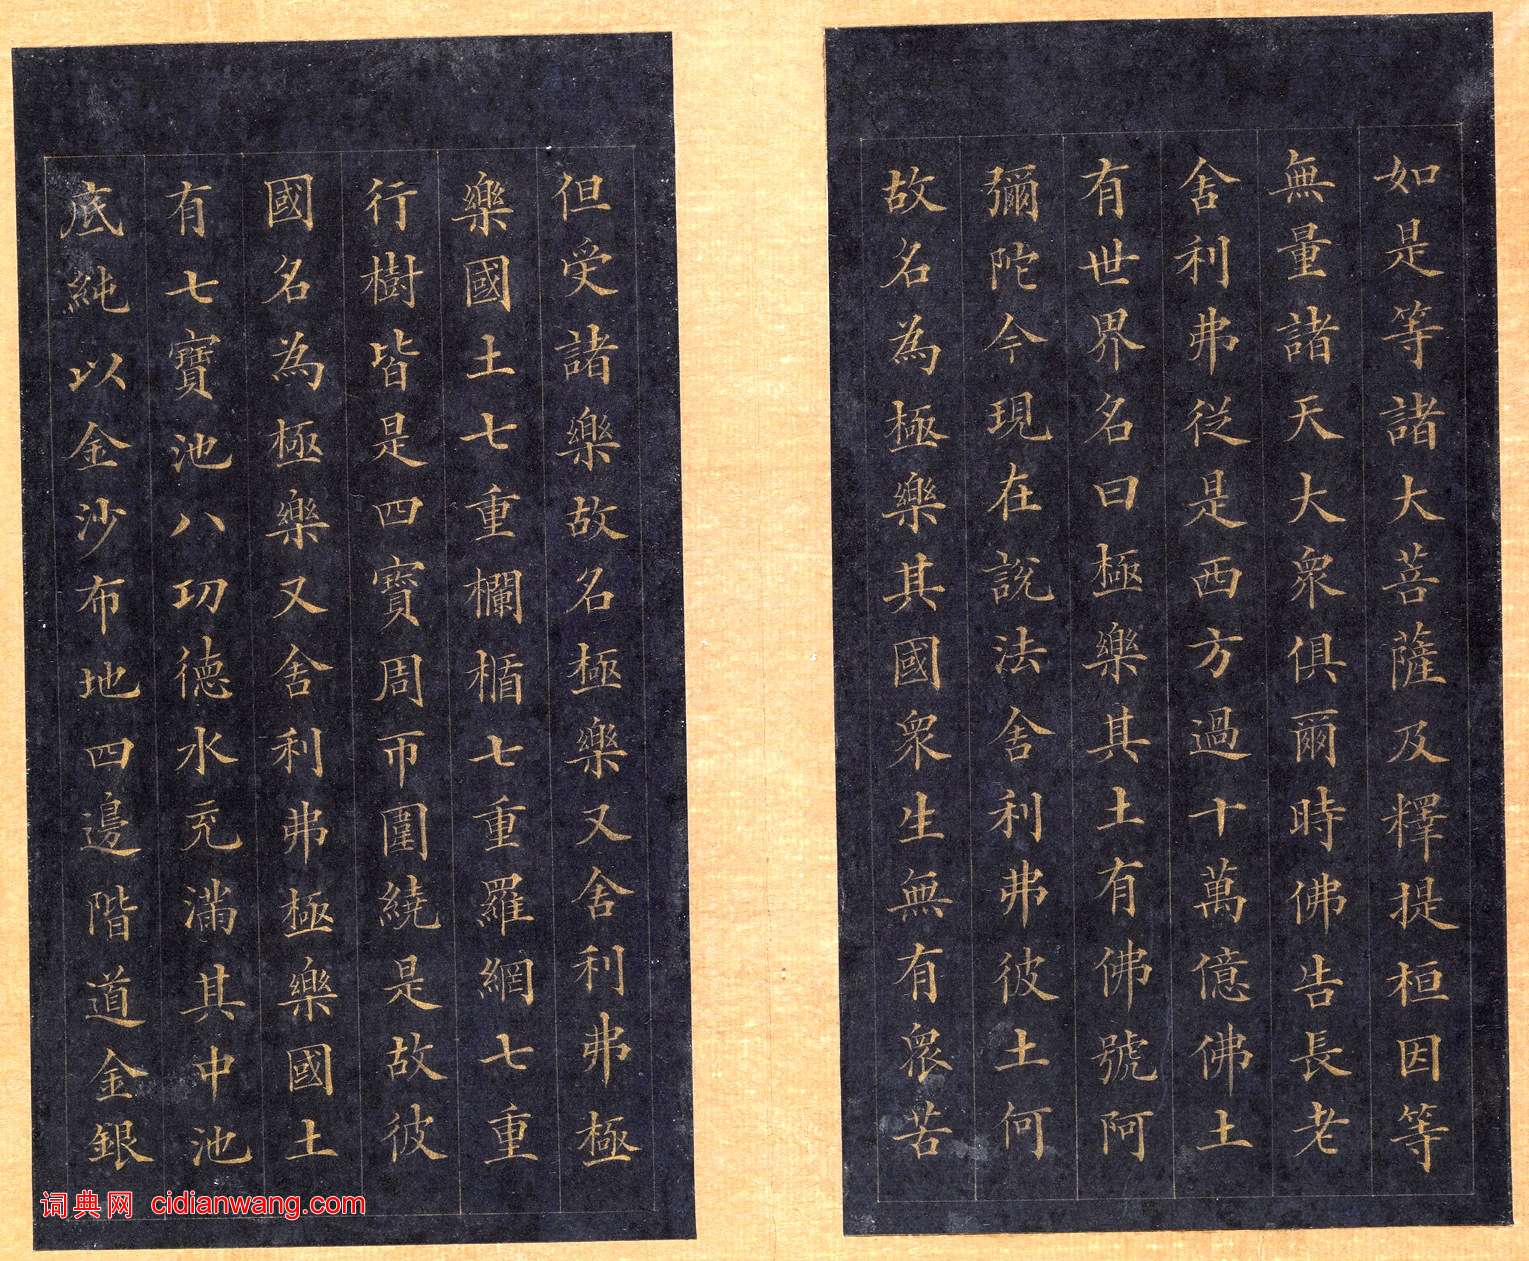 如是等諸大菩薩及釋提桓因等
無量諸天大眾俱爾時佛告長老
舍利弗從是西方過十萬億佛土
有世界名曰極樂其土有佛號阿
彌陀今現在說法舍利弗彼土何
故名為極樂其國眾生無有眾苦
但受諸樂故名極樂又舍利弗極
樂國土七重欄楯七重羅網七重
行樹皆是四寶周帀圍繞是故彼
國名為極樂又舍利弗極樂國土
有七寶池八功德水充滿其中池
底純以金沙布地四邊階道金銀
词典网 cidianwang.com